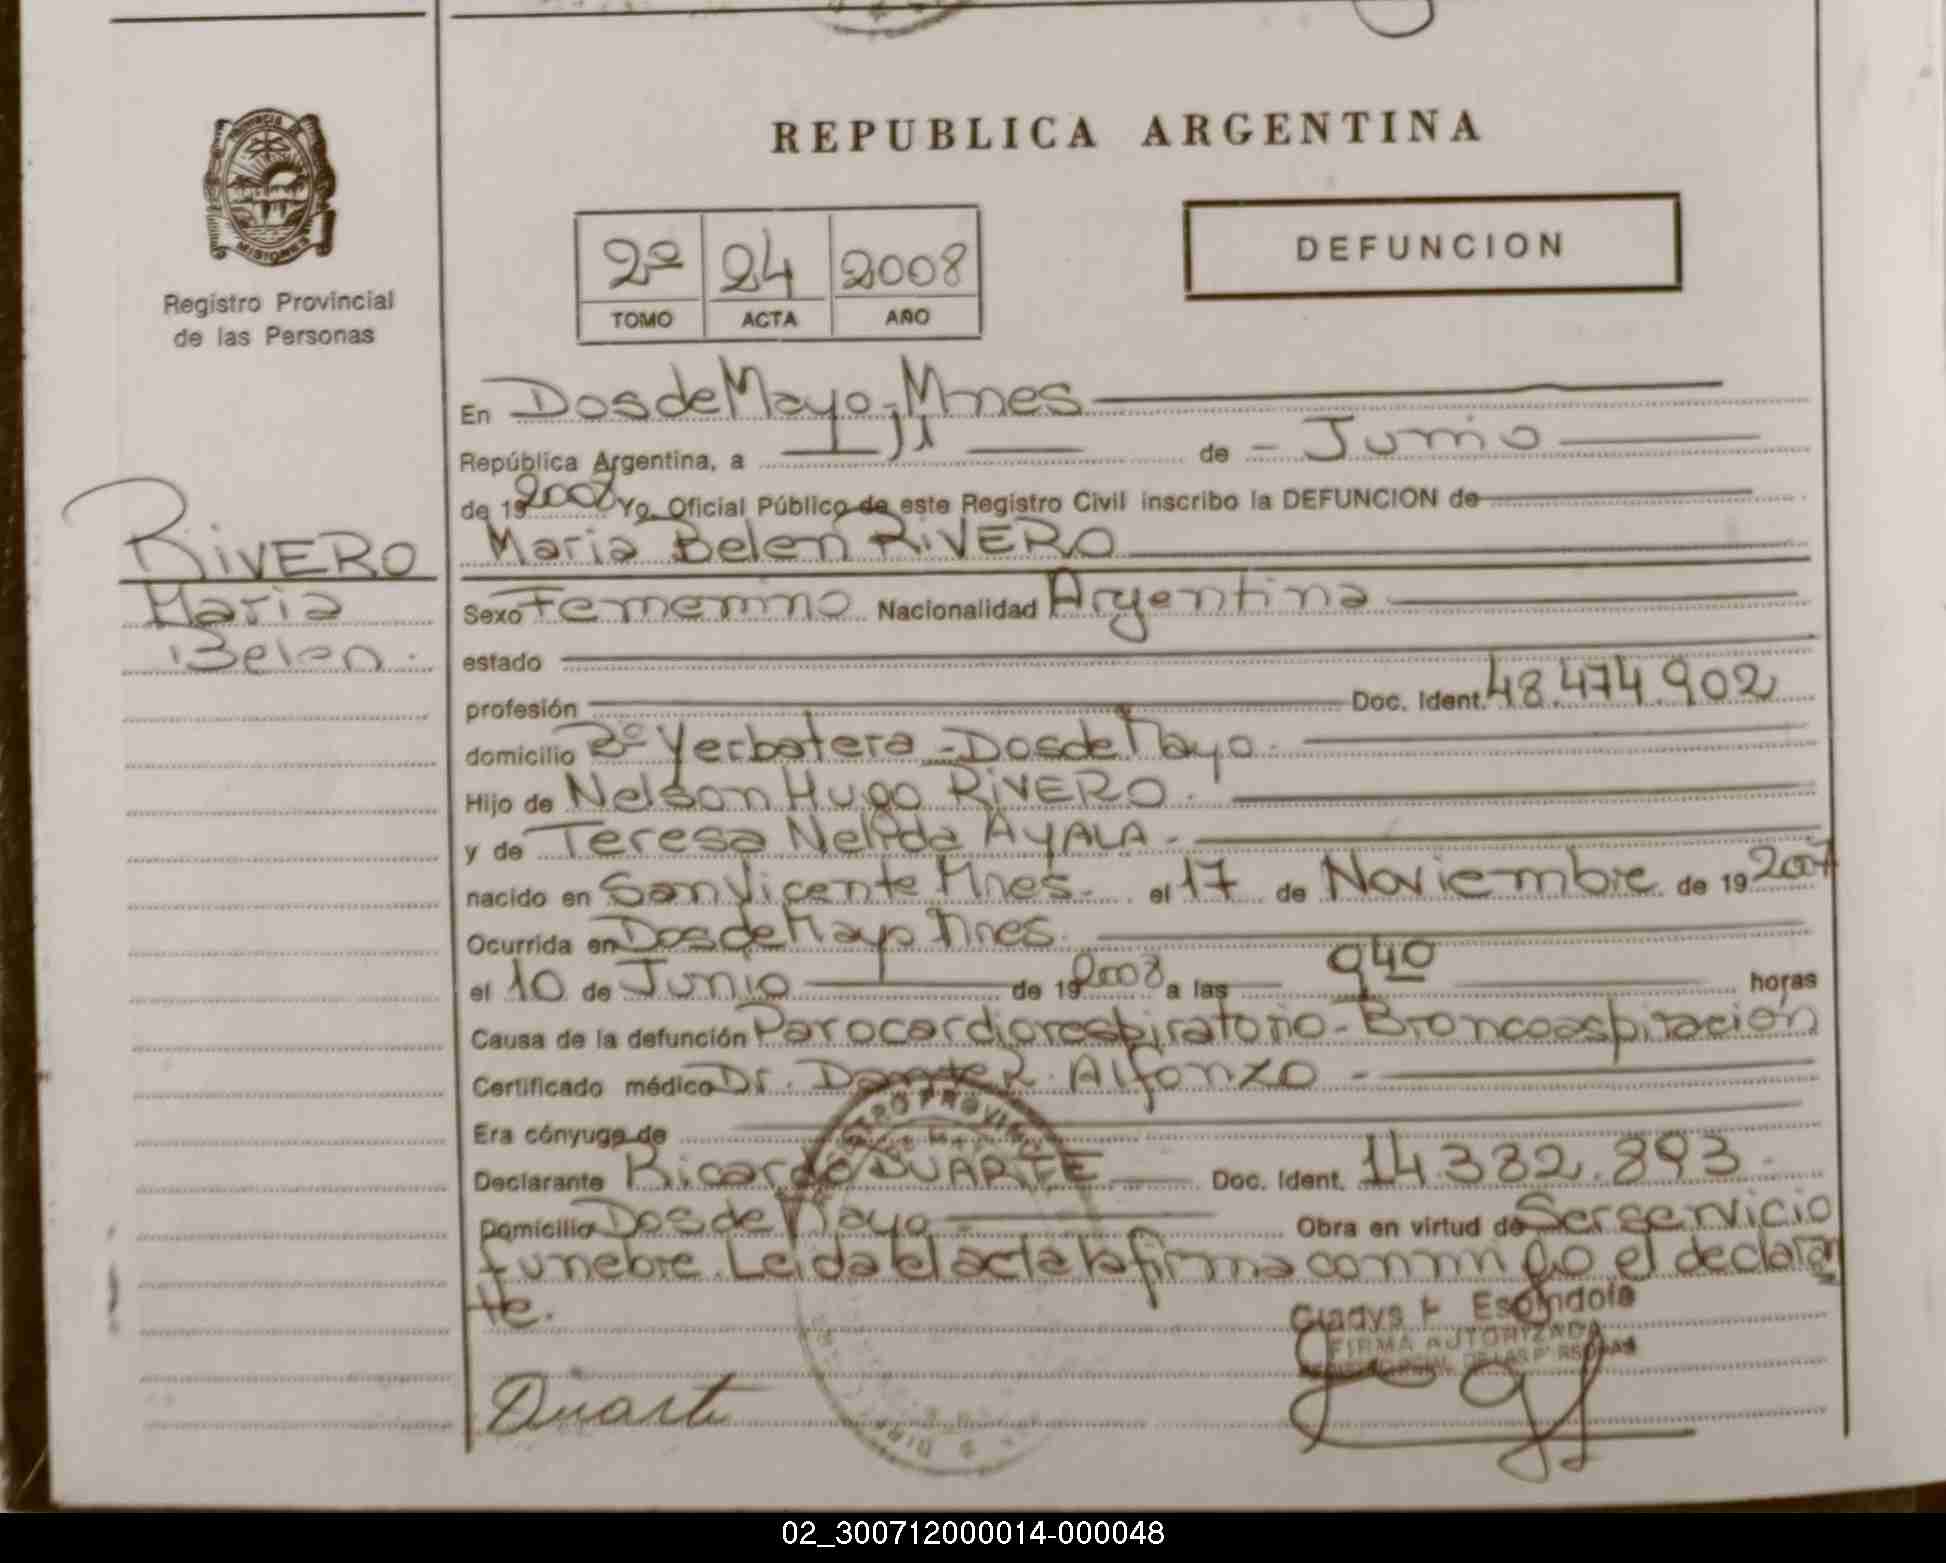 REPUBLICA ARGENTINA
PROVINCIA DE
MISIONES
Registro Provincial
de las Personas
2º 24 2008
TOMO ACTA AÑO
DEFUNCION
En Dos de Mayo, Mnes
República Argentina, a 11 de - Junio
de 19 2008 Yo, Oficial Público de este Registro Civil inscribo la DEFUNCION de
Maria Belen RIVERO
RIVERO
Maria
Belen.
Sexo Femenino Nacionalidad Argentina
estado
profesión Doc. Ident. 48.474.902
domicilio 2º Yerbatera - Dos de Mayo.
Hijo de Nelson Hugo RIVERO.
y de Teresa Nelida AYALA -
nacido en San Vicente Mnes. el 17 de Noviembre de 19 2007
Ocurrida en Dos de Mayo Mnes.
el 10 de Junio de 19 2008 a las 940 horas
Causa de la defunción Parocardiorespiratorio - Broncoaspiración
Certificado médico Dr. R. Alfonzo -
Era cónyuge de
Declarante Ricardo DUARTE Doc. Ident. 14.332.893
Domicilio Dos de Mayo Obra en virtud de Ser servicio
funebre. Leida el acta la firma conmigo el declaran
te.
Gladys F. Espindola
FIRMA AUTORIZADA
Duarte
02_300712000014-000048